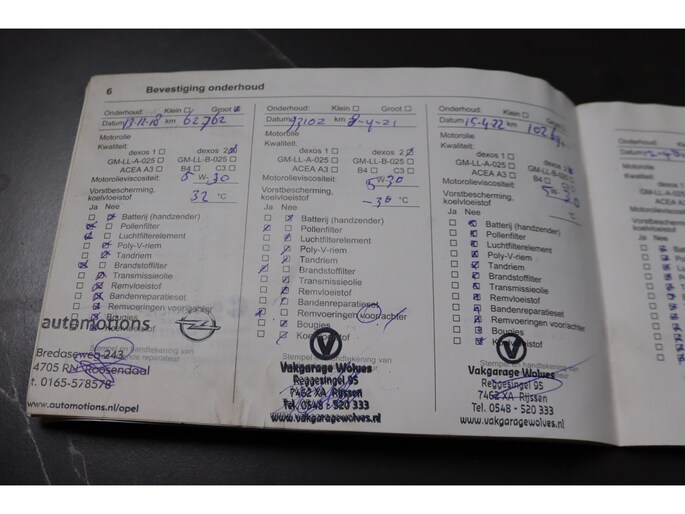 6 Bevestiging onderhoud
Onderhoud: Klein Groot
Datum 13-11-18 km 62762
Motorolie
Kwaliteit:
dexos 1 dexos 2
GM-LL-A-025 GM-LL-B-025
ACEA A3 B4 C3
Motorolieviscositeit: 5 W- 30
Vorstbescherming,
koelvloeistof 32 °C
Ja Nee
Batterij (handzender)
Pollenfilter
Luchtfilterelement
Poly-V-riem
Tandriem
Brandstoffilter
Transmissieolie
Remvloeistof
Bandenreparatieset
Remvoeringen voor/achter
Bougies
Koelvloeistof
automotions
Bredaseweg 243
4705 RN Roosendaal
t. 0165-578578
www.automotions.nl/opel
Onderhoud: Klein Groot
Datum 93102 km 8-4-21
Motorolie
Kwaliteit:
dexos 1 dexos 2
GM-LL-A-025 GM-LL-B-025
ACEA A3 B4 C3
Motorolieviscositeit: 5 W- 30
Vorstbescherming,
koelvloeistof -36 °C
Ja Nee
Batterij (handzender)
Pollenfilter
Luchtfilterelement
Poly-V-riem
Tandriem
Brandstoffilter
Transmissieolie
Remvloeistof
Bandenreparatieset
Remvoeringen voor/achter
Bougies
Koelvloeistof
Vakgarage Wolves
Reggesingel 95
7462 XA Rijssen
Tel. 0548 - 520 333
www.vakgaragewolves.nl
Onderhoud: Klein Groot
Datum 15-4-22 km
Motorolie
Kwaliteit:
dexos 1 dexos 2
GM-LL-A-025 GM-LL-B-025
ACEA A3 B4 C3
Motorolieviscositeit: 5 W- 30
Vorstbescherming,
koelvloeistof °C
Ja Nee
Batterij (handzender)
Pollenfilter
Luchtfilterelement
Poly-V-riem
Tandriem
Brandstoffilter
Transmissieolie
Remvloeistof
Bandenreparatieset
Remvoeringen voor/achter
Bougies
Koelvloeistof
Stempel en handtekening van
Vakgarage Wolves
Reggesingel 95
7462 XA Rijssen
Tel. 0548 - 520 333
www.vakgaragewolves.nl
Onderhoud:
Datum
Motorolie
Kwaliteit:
Ja Nee